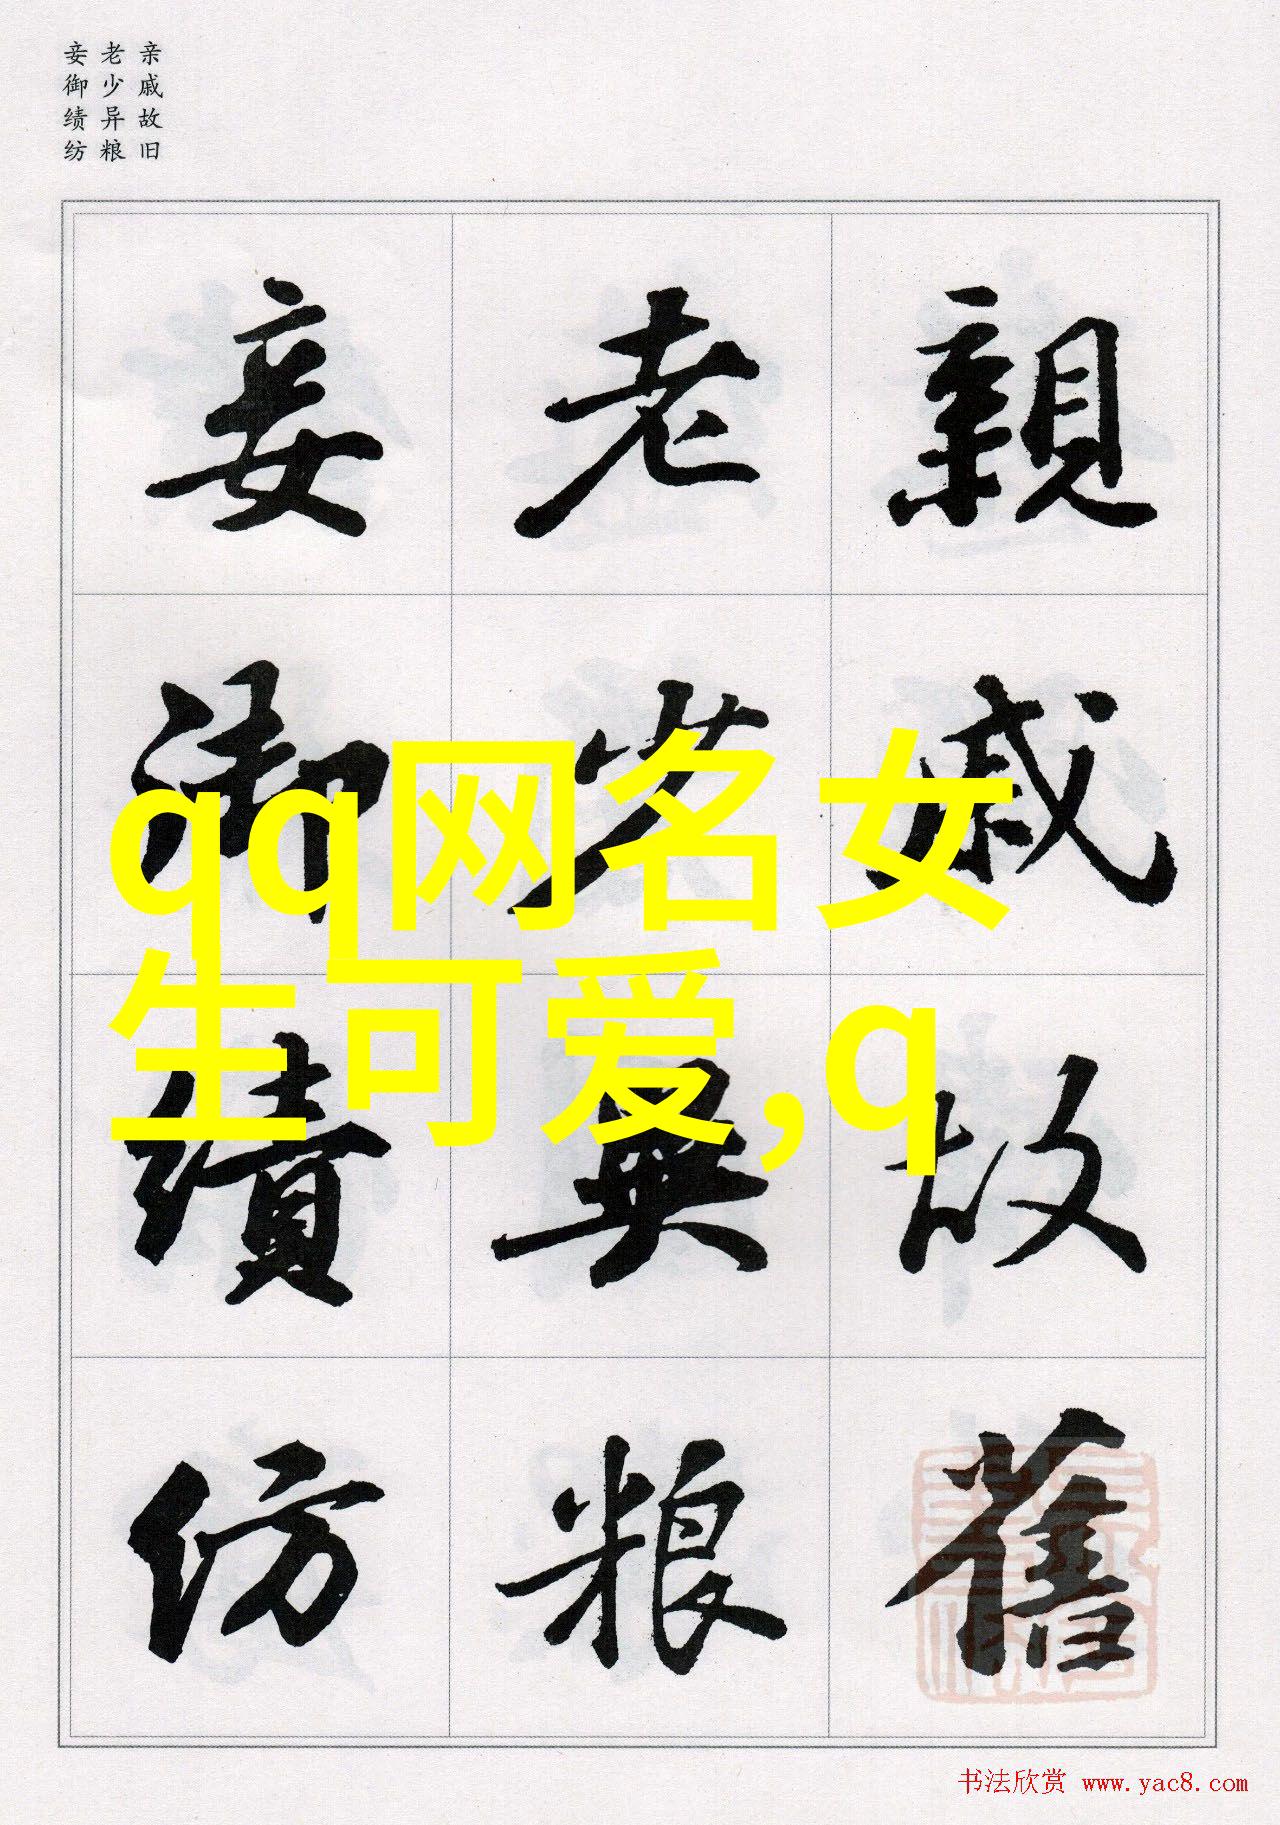 亲戚故旧
老少异粮
妾御绩纺
親戚故舊
老少異粮
妾御績紡
qq网名女
生可爱,q
书法欣赏 www.yac8.com